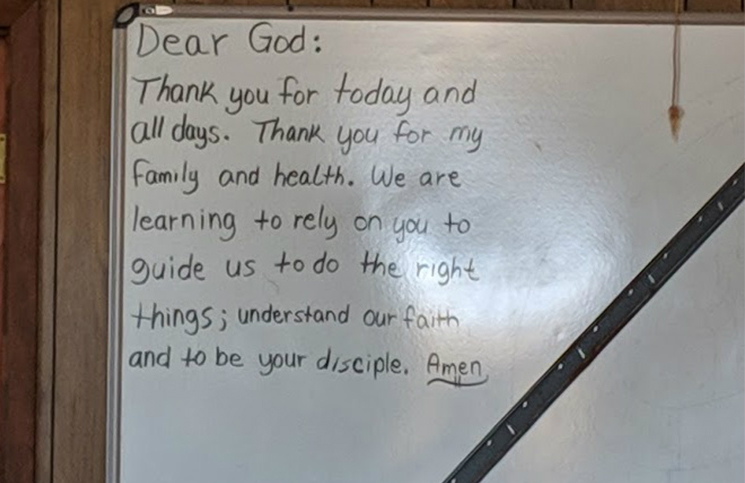 Dear God:
Thank you for today and
all days. Thank you for my
family and health. We are
learning to rely on you to
guide us to do the right
things; understand our faith
and to be your disciple. Amen.